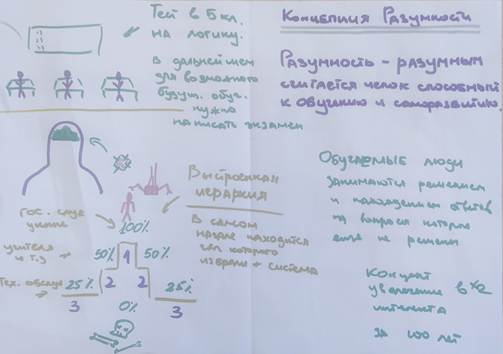 Тест в 5 кл.
на логику.
в дальнейшем
для возможного
будущ. обуч.
нужно
написать экзамен
Концепция Разумности
Разумность - разумным
считается человек способный
к обучению и саморазвитию.
Выстроенная
иерархия
в самом
начале находится
которого
избрали + система
гос. служ
100%
учителя
и т.д
50%
1
50%
Тех. обслуж
25%
2
2
25%
3
0%
3
Обучаемые люди
занимаются решением
и нахождением ответов
на вопросы которые
еще не решены
Концепт
увеличение в x2
интелекта
за 100 лет